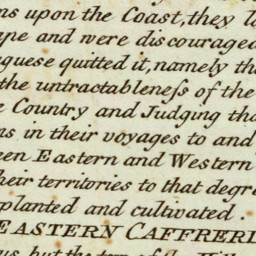 ns upon the Coast, they l
ape and were discouraged
uguese quitted it, namely th
the untractableness of the
e Country and Judging tha
ns in their voyages to and
een Eastern and Western
their territories to that degre
planted and cultivated.
EASTERN CAFFRERI